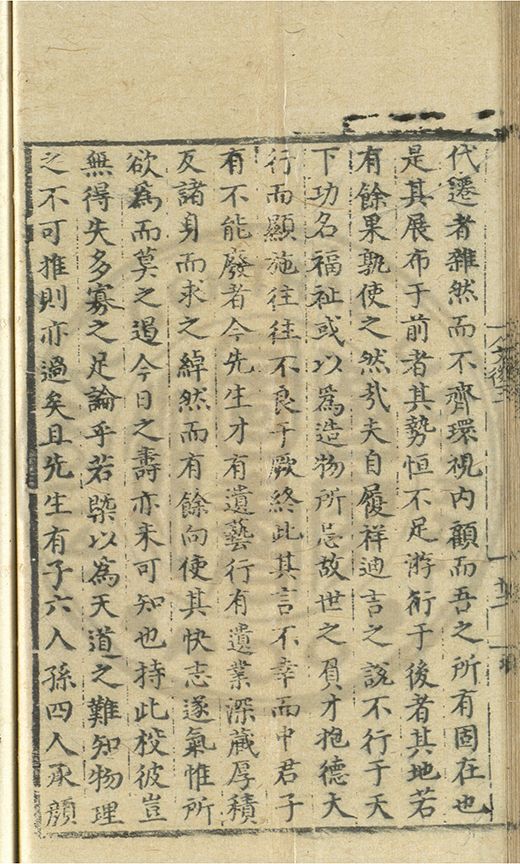 代遷者雜然而不齊環視内顧而吾之所有固在也
是其展布于前者其勢恒不足游衍于後者其地若
有餘果孰使之然㦲夫自履祥迪吉之說不行于天
下功名福祉或以爲造物所忌故世之負才抱德大
行而顯施往往不良于厥終此其言不幸而中君子
有不能廢者今先生才有遺藝行有遺業深藏厚積
反諸身而求之綽然而有餘向使其快志遂氣惟所
欲爲而莫之遏今日之壽亦未可知也持此校彼豈
無得失多寡之足論乎若槩以為天道之難知物理
之不可推則亦過矣且先生有子六人孫四人承顔